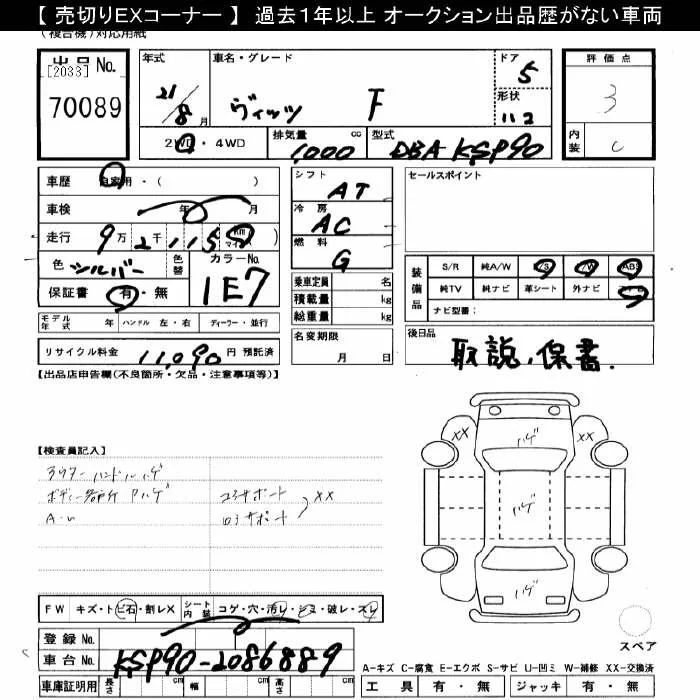 【 売切りEXコーナー 】 過去１年以上 オークション出品歴がない車両
(複合機)対応用紙
出品 No.
[2033]
70089
年式
21/8月
車名・グレード
ヴィッツ F
ドア
5
形状
112
2WD・4WD
排気量 cc
1,000
型式
DBA KSP90
評価点
3
内装
C
車歴 自家用・( )
車検 年 月
走行 9万2千115 Km マイル
色 シルバー 色替
カラーNo.
1E7
保証書 有・無
モデル年式 年 ハンドル 左・右 ディーラー・並行
リサイクル料金 11,090 円 預託済
シフト
AT
冷房
AC
燃料
G
乗車定員 名
積載量 kg
総重量 kg
名変期限
月 日
セールスポイント
装備品
S/R 純A/W P/S P/W ABS
純TV 純ナビ 革シート 外ナビ
ナビ型番:
後日品
取説、保書.
【出品店申告欄(不良箇所・欠品・注意事項等)】
【検査員記入】
アウターハンドルハゲ
コアサポート
XX
ロアサポート
A-U
XX
XX
ハゲ
ハゲ
ハゲ
FW キズ・トビ石・割レX
シート内装 コゲ・穴・汚レ・シミ・破レ・スレ
登録 No.
車台 No. KSP90-2086889
車庫証明用 長さ cm 幅 cm 高さ cm
スペア
A-キズ C-腐食 E-エクボ S-サビ U-凹ミ W-補修 XX-交換済
工具 有・無 ジャッキ 有・無